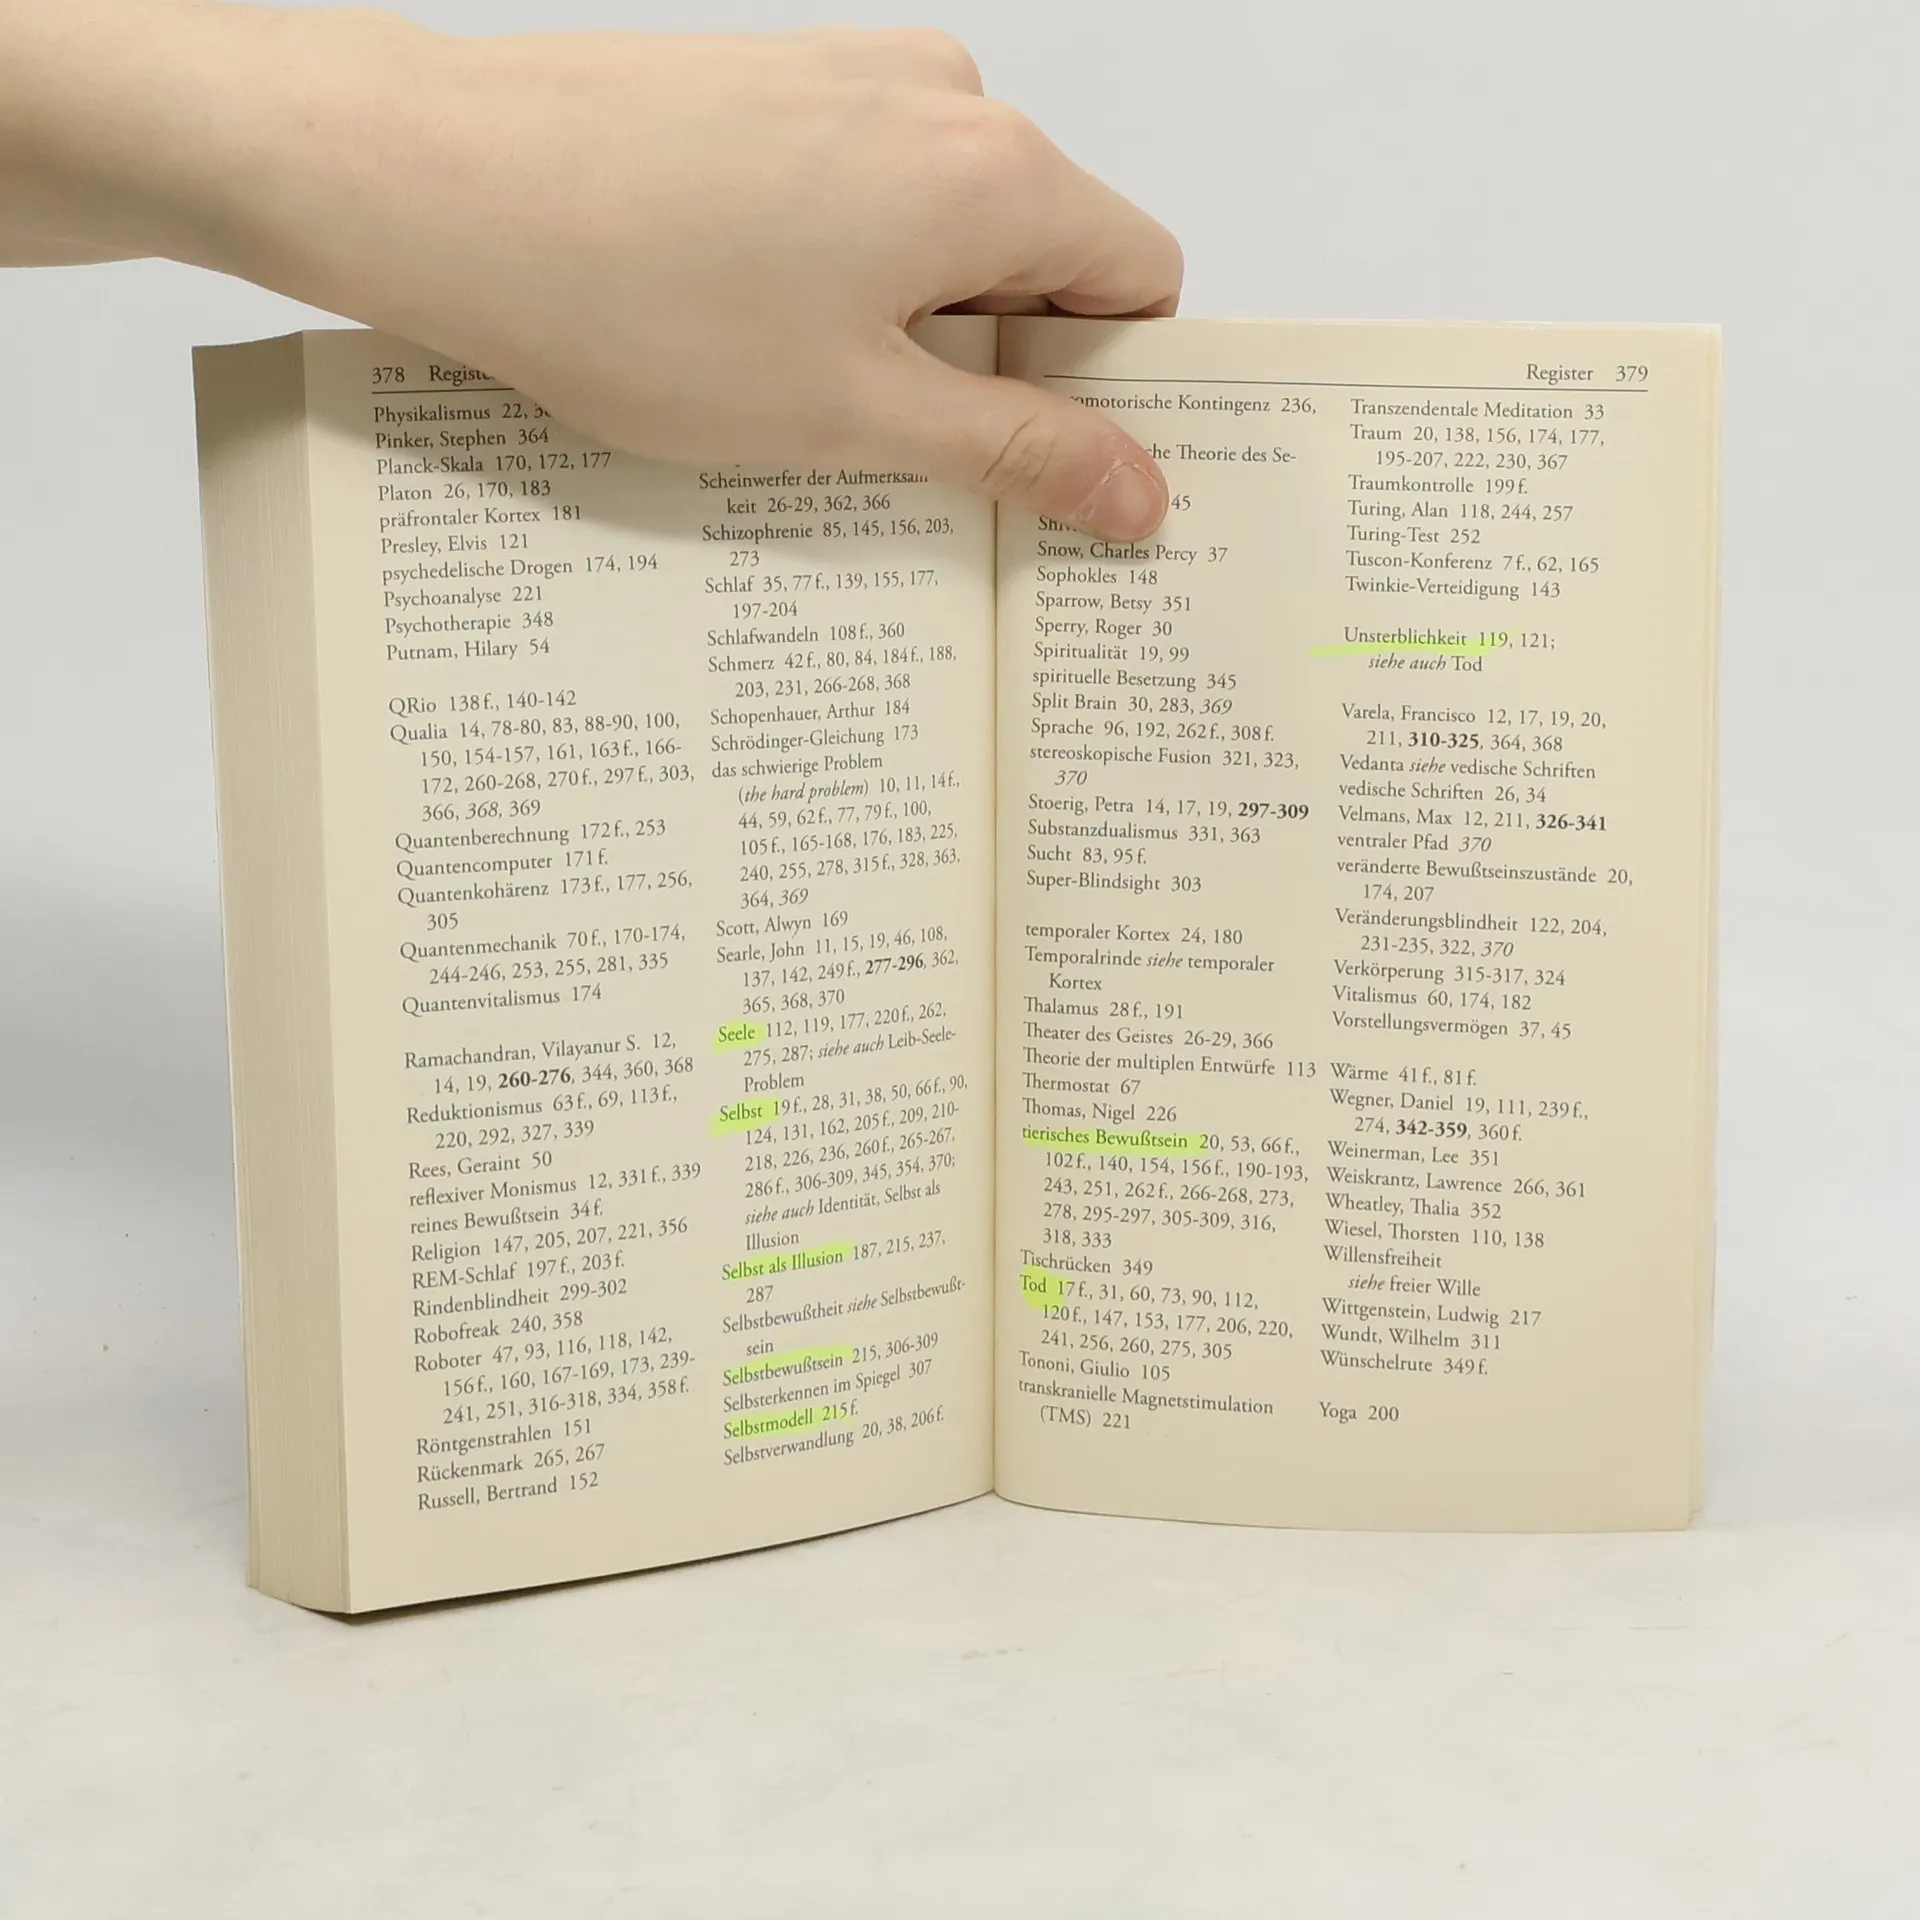 378 Register
Physikalismus 22,
Pinker, Stephen 364
Planck-Skala 170, 172, 177
Platon 26, 170, 183
präfrontaler Kortex 181
Presley, Elvis 121
psychedelische Drogen 174, 194
Psychoanalyse 221
Psychotherapie 348
Putnam, Hilary 54
QRio 138 f., 140-142
Qualia 14, 78-80, 83, 88-90, 100,
150, 154-157, 161, 163 f., 166-
172, 260-268, 270 f., 297 f., 303,
366, 368, 369
Quantenberechnung 172 f., 253
Quantencomputer 171 f.
Quantenkohärenz 173 f., 177, 256,
305
Quantenmechanik 70 f., 170-174,
244-246, 253, 255, 281, 335
Quantenvitalismus 174
Ramachandran, Vilayanur S. 12,
14, 19, 260-276, 344, 360, 368
Reduktionismus 63 f., 69, 113 f.,
220, 292, 327, 339
Rees, Geraint 50
reflexiver Monismus 12, 331 f., 339
reines Bewußtsein 34 f.
Religion 147, 205, 207, 221, 356
REM-Schlaf 197 f., 203 f.
Rindenblindheit 299-302
Robofreak 240, 358
Roboter 47, 93, 116, 118, 142,
156 f., 160, 167-169, 173, 239-
241, 251, 316-318, 334, 358 f.
Röntgenstrahlen 151
Rückenmark 265, 267
Russell, Bertrand 152
Scheinwerfer der Aufmerksam
keit 26-29, 362, 366
Schizophrenie 85, 145, 156, 203,
273
Schlaf 35, 77 f., 139, 155, 177,
197-204
Schlafwandeln 108 f., 360
Schmerz 42 f., 80, 84, 184 f., 188,
203, 231, 266-268, 368
Schopenhauer, Arthur 184
Schrödinger-Gleichung 173
das schwierige Problem
(the hard problem) 10, 11, 14 f.,
44, 59, 62 f., 77, 79 f., 100,
105 f., 165-168, 176, 183, 225,
240, 255, 278, 315 f., 328, 363,
364, 369
Scott, Alwyn 169
Searle, John 11, 15, 19, 46, 108,
137, 142, 249 f., 277-296, 362,
365, 368, 370
Seele 112, 119, 177, 220 f., 262,
275, 287; siehe auch Leib-Seele-
Problem
Selbst 19 f., 28, 31, 38, 50, 66 f., 90,
124, 131, 162, 205 f., 209, 210-
218, 226, 236, 260 f., 265-267,
286 f., 306-309, 345, 354, 370;
siehe auch Identität, Selbst als
Illusion
Selbst als Illusion 187, 215, 237,
287
Selbstbewußtheit siehe Selbstbewußt-
sein
Selbstbewußtsein 215, 306-309
Selbsterkennen im Spiegel 307
Selbstmodell 215 f.
Selbstverwandlung 20, 38, 206 f.
Register 379
omotorische Kontingenz 236,
che Theorie des Se-
45
Snow, Charles Percy 37
Sophokles 148
Sparrow, Betsy 351
Sperry, Roger 30
Spiritualität 19, 99
spirituelle Besetzung 345
Split Brain 30, 283, 369
Sprache 96, 192, 262 f., 308 f.
stereoskopische Fusion 321, 323,
370
Stoerig, Petra 14, 17, 19, 297-309
Substanzdualismus 331, 363
Sucht 83, 95 f.
Super-Blindsight 303
temporaler Kortex 24, 180
Temporalrinde siehe temporaler
Kortex
Thalamus 28 f., 191
Theater des Geistes 26-29, 366
Theorie der multiplen Entwürfe 113
Thermostat 67
Thomas, Nigel 226
tierisches Bewußtsein 20, 53, 66 f.,
102 f., 140, 154, 156 f., 190-193,
243, 251, 262 f., 266-268, 273,
278, 295-297, 305-309, 316,
318, 333
Tischrücken 349
Tod 17 f., 31, 60, 73, 90, 112,
120 f., 147, 153, 177, 206, 220,
241, 256, 260, 275, 305
Tononi, Giulio 105
transkranielle Magnetstimulation
(TMS) 221
Transzendentale Meditation 33
Traum 20, 138, 156, 174, 177,
195-207, 222, 230, 367
Traumkontrolle 199 f.
Turing, Alan 118, 244, 257
Turing-Test 252
Tuscon-Konferenz 7 f., 62, 165
Twinkie-Verteidigung 143
Unsterblichkeit 119, 121;
siehe auch Tod
Varela, Francisco 12, 17, 19, 20,
211, 310-325, 364, 368
Vedanta siehe vedische Schriften
vedische Schriften 26, 34
Velmans, Max 12, 211, 326-341
ventraler Pfad 370
veränderte Bewußtseinszustände 20,
174, 207
Veränderungsblindheit 122, 204,
231-235, 322, 370
Verkörperung 315-317, 324
Vitalismus 60, 174, 182
Vorstellungsvermögen 37, 45
Wärme 41 f., 81 f.
Wegner, Daniel 19, 111, 239 f.,
274, 342-359, 360 f.
Weinerman, Lee 351
Weiskrantz, Lawrence 266, 361
Wheatley, Thalia 352
Wiesel, Thorsten 110, 138
Willensfreiheit
siehe freier Wille
Wittgenstein, Ludwig 217
Wundt, Wilhelm 311
Wünschelrute 349 f.
Yoga 200